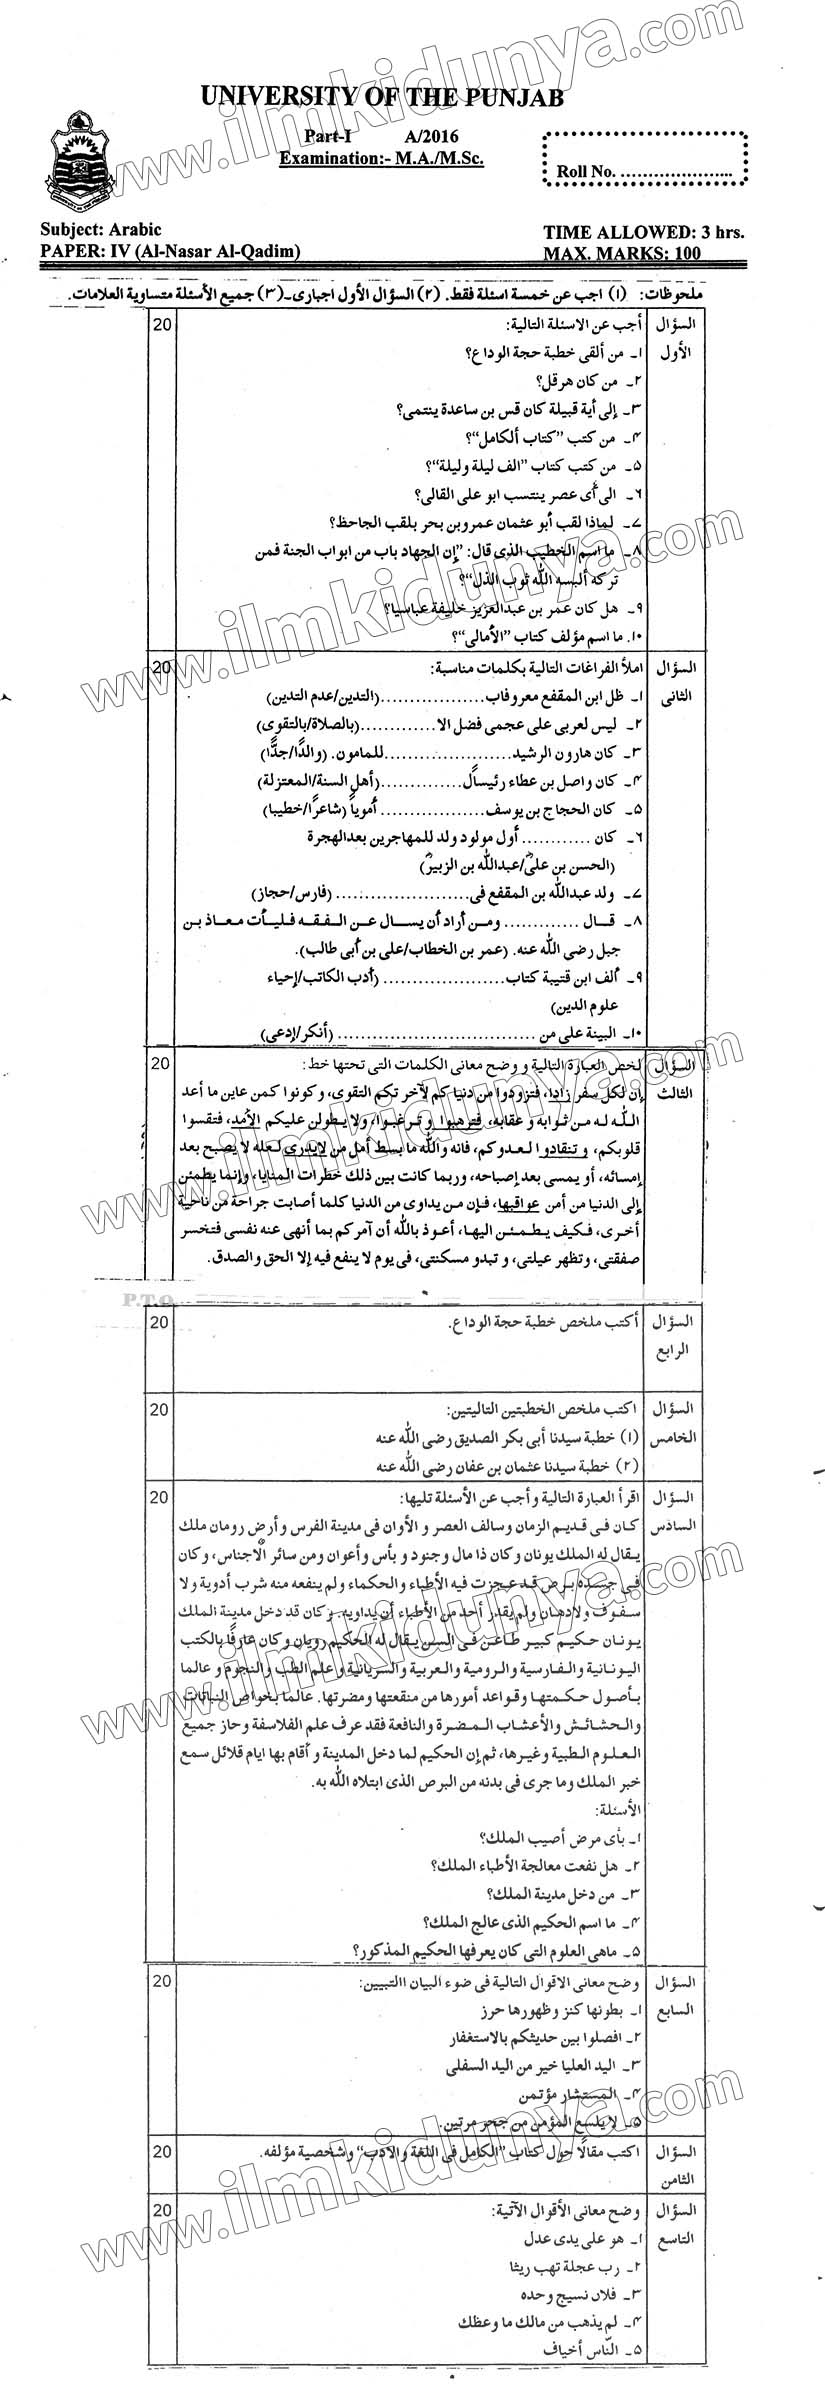 www.ilmkidunya.com
UNIVERSITY OF THE PUNJAB
Part-I A/2016
Examination:- M.A./M.Sc.
Roll No. ......................
Subject: Arabic
PAPER: IV (Al-Nasar Al-Qadim)
TIME ALLOWED: 3 hrs.
MAX. MARKS: 100
ملحوظات: (۱) اجب عن خمسة اسئلة فقط. (۲) السؤال الأول اجباری۔ (۳) جميع الأسئلة متساوية العلامات.
السؤال الأول
أجب عن الاسئلة التالية:
20
۱۔ من ألقى خطبة حجة الوداع؟
۲۔ من كان هرقل؟
۳۔ إلى أية قبيلة كان قس بن ساعدة ينتمى؟
۴۔ من كتب "كتاب ألكامل"؟
۵۔ من كتب كتاب "الف ليلة وليلة"؟
۶۔ الى أى عصر ينتسب ابو على القالى؟
۷۔ لماذا لقب أبو عثمان عمرو بن بحر بلقب الجاحظ؟
۸۔ ما اسم الخطيب الذى قال: "إن الجهاد باب من ابواب الجنة فمن
تركه ألبسه الله ثوب الذل"؟
۹۔ هل كان عمر بن عبدالعزيز خليفة عباسيا؟
۱۰. ما اسم مؤلف كتاب "الأمالى"؟
السؤال الثانى
املأ الفراغات التالية بكلمات مناسبة:
20
۱۔ ظل ابن المقفع معروفاب..................(التدين/عدم التدين)
۲۔ ليس لعربى على عجمى فضل الا.............(بالصلاة/بالتقوى)
۳۔ كان هارون الرشيد......................للمامون. (والدًا/جدًّا)
۴۔ كان واصل بن عطاء رئيساًل..............(أهل السنة/المعتزلة)
۵۔ كان الحجاج بن يوسف.................. أموياً (شاعرًا/خطيبا)
۶۔ كان ............ أول مولود ولد للمهاجرين بعدالهجرة
(الحسن بن علىؓ/عبدالله بن الزبيرؓ)
۷۔ ولد عبدالله بن المقفع فى....................... (فارس/حجاز)
۸۔ قال ............. ومن أراد أن يسال عن الفقه فليأت معاذ بن
جبل رضى الله عنه. (عمر بن الخطاب/على بن أبى طالب).
۹۔ ألف ابن قتيبة كتاب..................... (أدب الكاتب/إحياء
علوم الدين)
۱۰۔ البينة على من .................................. (أنكر/إدعى)
السؤال الثالث
لخص العبارة التالية و وضح معانى الكلمات التى تحتها خط:
20
إن لكل سفر زادا، فتزودوا من دنيا كم لآخر تكم التقوى، وكونوا كمن عاين ما أعد
الله له من ثوابه و عقابه، فترهبوا و ترغبوا، ولا يطولن عليكم الأمد، فتقسوا
قلوبكم، و تنقادوا لعدوكم، فانه والله ما بسط أمل من لا يدرى لعله لا يصبح بعد
إمسائه، أو يمسى بعد إصباحه، وربما كانت بين ذلك خطرات المنايا، وإنما يطمئن
إلى الدنيا من أمن عواقبها، فإن من يداوى من الدنيا كلما أصابت جراحة من ناحية
أخرى، فكيف يطمئن اليها، أعوذ بالله أن آمركم بما أنهى عنه نفسى فتخسر
صفقتى، وتظهر عيلتى، و تبدو مسكنتى، فى يوم لا ينفع فيه إلا الحق والصدق.
P.T.O
السؤال الرابع
أكتب ملخص خطبة حجة الوداع.
20
السؤال الخامس
اكتب ملخص الخطبتين التاليتين:
20
(۱) خطبة سيدنا أبى بكر الصديق رضى الله عنه
(۲) خطبة سيدنا عثمان بن عفان رضى الله عنه
السؤال السادس
اقرأ العبارة التالية و أجب عن الأسئلة تليها:
20
كان فى قديم الزمان وسالف العصر و الأوان فى مدينة الفرس و أرض رومان ملك
يقال له الملك يونان و كان ذا مال و جنود و بأس و أعوان ومن سائر الأجناس، و كان
فى جسده برص قد عجزت فيه الأطباء والحكماء ولم ينفعه منه شرب أدوية ولا
سفوف ولا دهان ولم يقدر أحد من الأطباء أن يداويه. و كان قد دخل مدينة الملك
يونان حكيم كبير طاعن فى السن يقال له الحكيم رويان و كان عارفًا بالكتب
اليونانية والفارسية والرومية والعربية والسريانية و علم الطب والنجوم و عالما
بأصول حكمتها و قواعد أمورها من منفعتها ومضرتها. عالما بخواص النباتات
والحشائش والأعشاب المضرة والنافعة فقد عرف علم الفلاسفة وحاز جميع
العلوم الطبية وغيرها، ثم إن الحكيم لما دخل المدينة و أقام بها ايام قلائل سمع
خبر الملك وما جرى فى بدنه من البرص الذى ابتلاه الله به.
الأسئلة:
۱۔ بأى مرض أصيب الملك؟
۲۔ هل نفعت معالجة الأطباء الملك؟
۳۔ من دخل مدينة الملك؟
۴۔ ما اسم الحكيم الذى عالج الملك؟
۵۔ ماهى العلوم التى كان يعرفها الحكيم المذكور؟
السؤال السابع
وضح معانى الاقوال التالية فى ضوء البيان االتبيين:
20
۱۔ بطونها كنز وظهورها حرز
۲۔ افصلوا بين حديثكم بالاستغفار
۳۔ اليد العليا خير من اليد السفلى
۴۔ المستشار مؤتمن
۵۔ لا يلسع المؤمن من جحر مرتين.
السؤال الثامن
اكتب مقالًا حول كتاب "الكامل فى اللغة والادب" وشخصية مؤلفه.
20
السؤال التاسع
وضح معانى الأقوال الآتية:
20
۱۔ هو على يدى عدل
۲۔ رب عجلة تهب ريثا
۳۔ فلان نسيج وحده
۴۔ لم يذهب من مالك ما وعظك
۵۔ النّاس أخياف